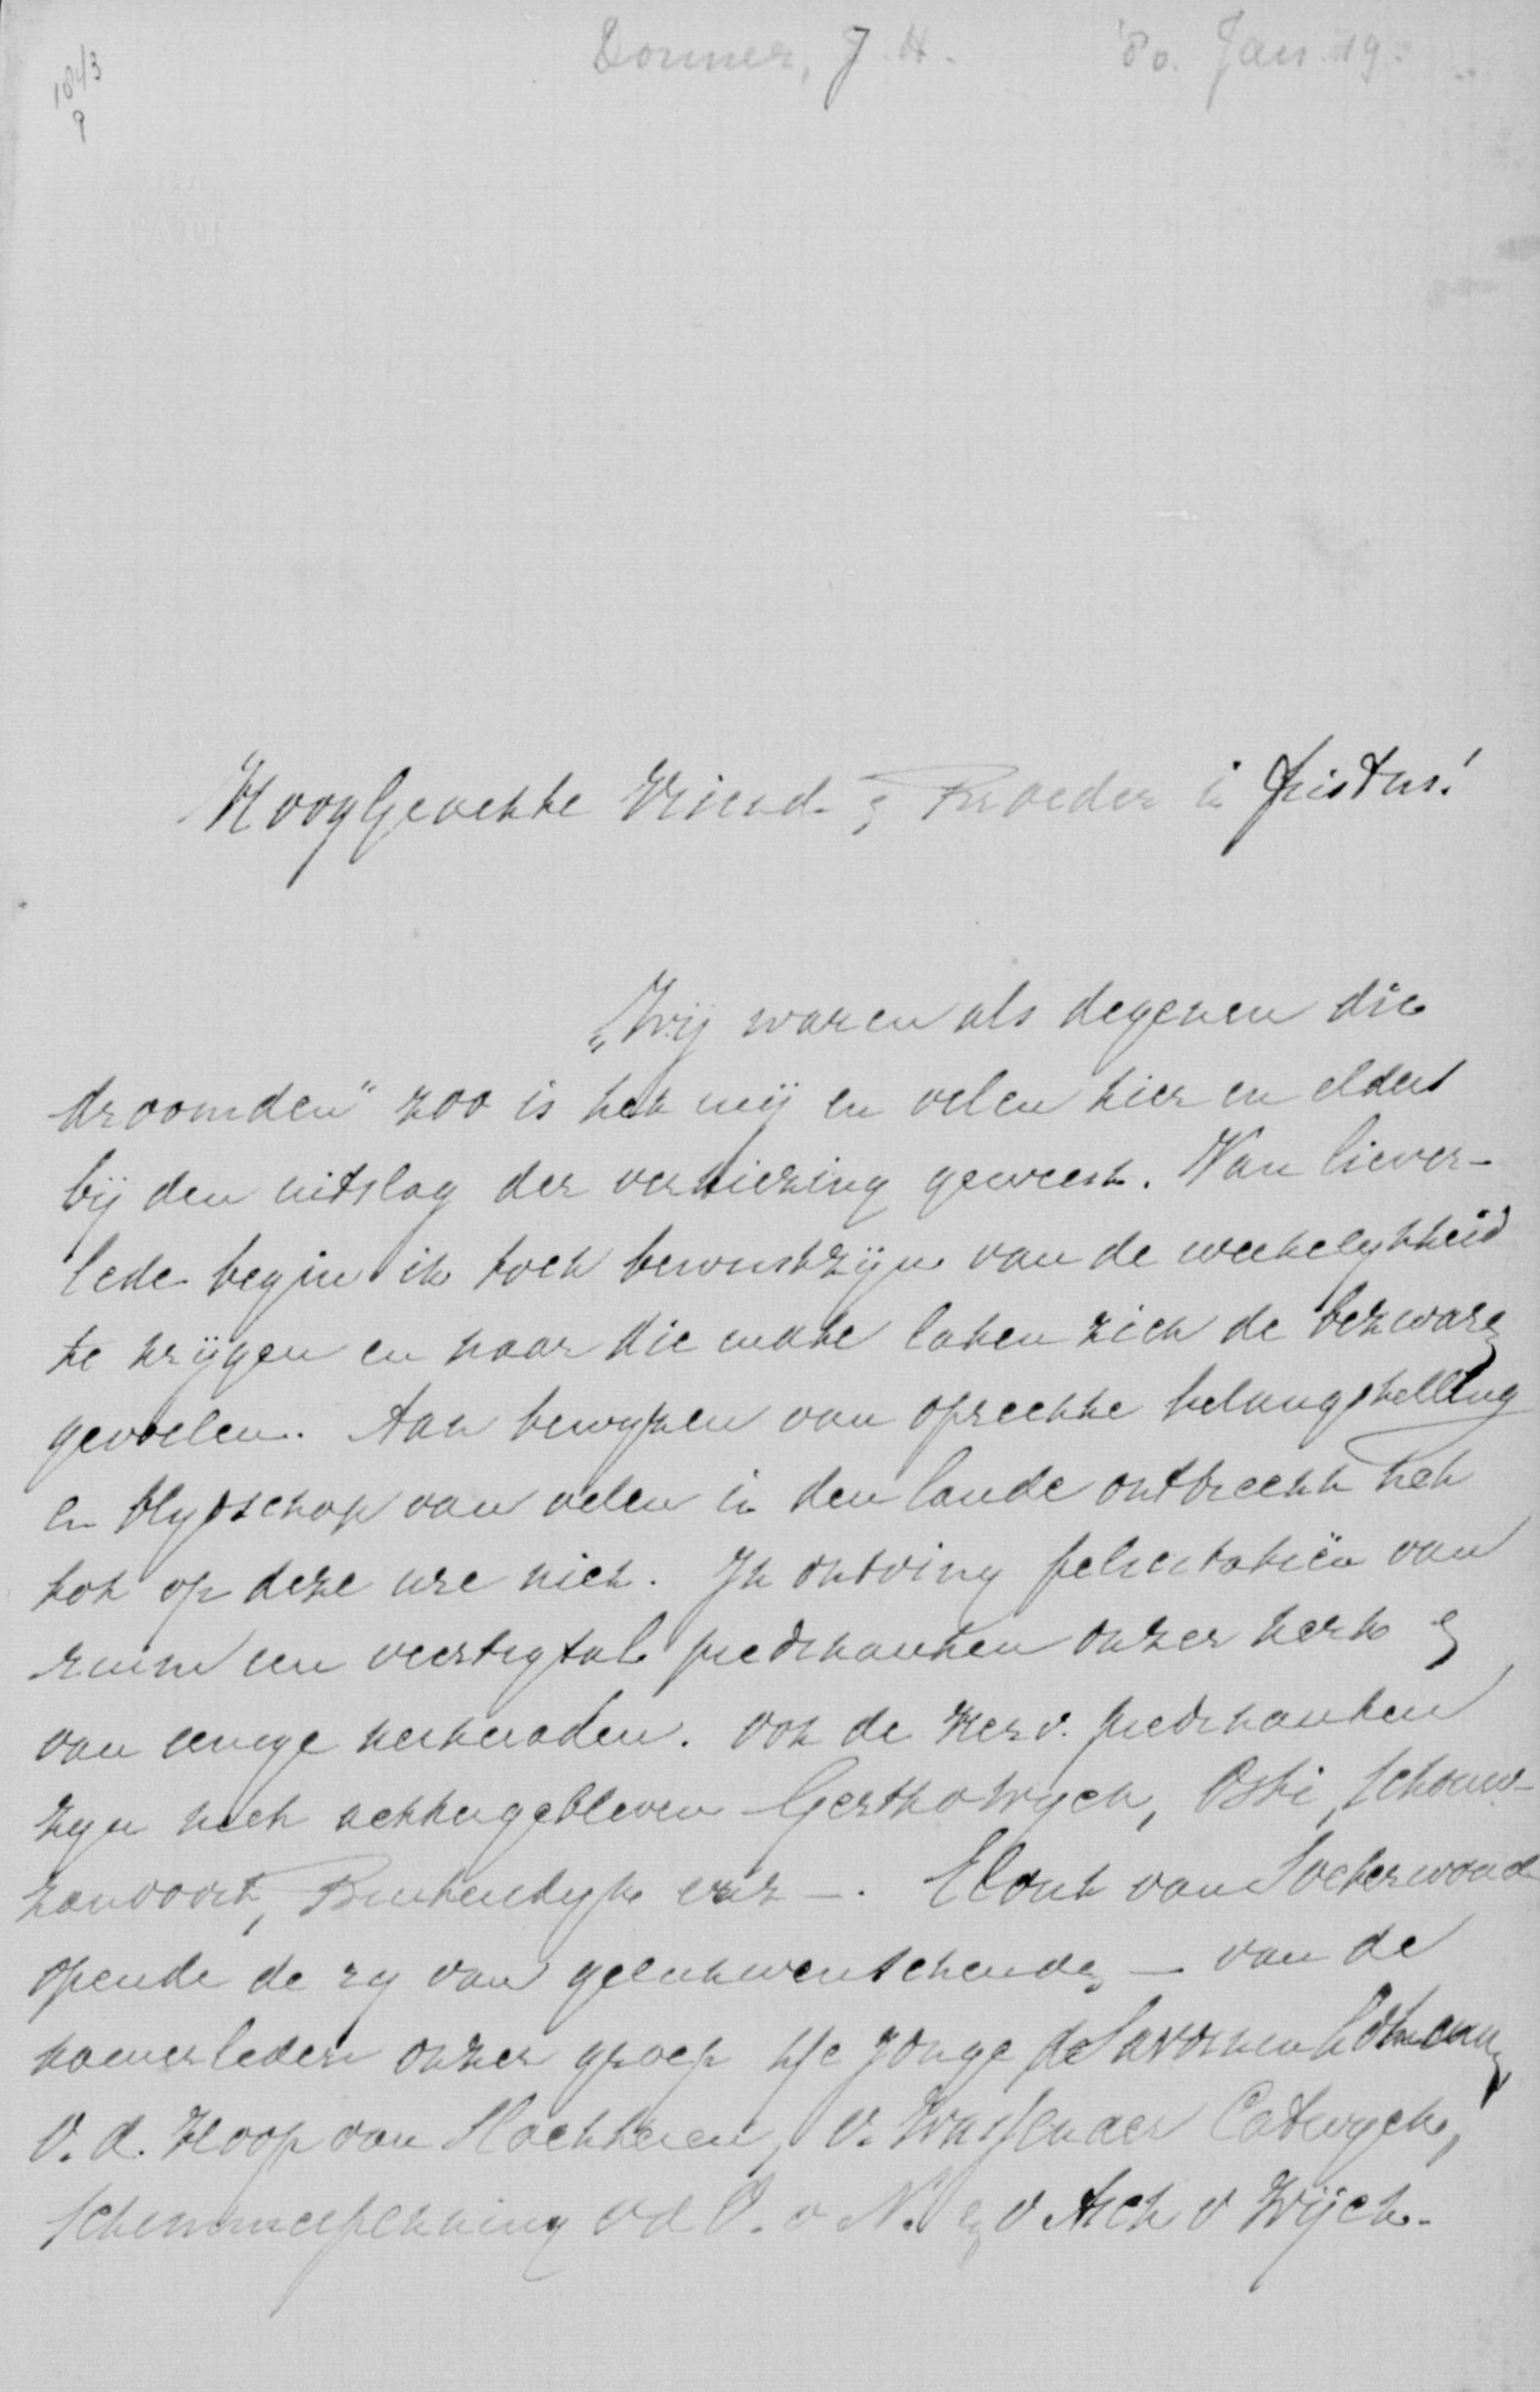 Donner, J.H. '80. Jan. 19.
1043
9
HoogGeachte Vriend & Broeder in Xristus!
„Wij waren als degenen die
droomden" zoo is het mij en velen hier en elders
bij den uitslag der verkiezing geweest. Van liever-
lede begin ik toch bewustzijn van de werkelykheid
te krijgen en naar die mate laten zich de bezwaren
gevoelen. Aan bewyzen van oprechte belangstelling
en blydschap van velen in den lande ontbreekt het
tot op deze ure niet. Ik ontving felicitatiën van
ruim een veertigtal predikanten onzer kerk &
van eenige kerkeraden. Ook de Herv. predikanten
zyn niet achtergebleven Gerth v Wyck, Osti, Schouw-
zandvoort, Buitendyk enz -. Elout van Soeterwoude
opende de ry van gelukwenschenden - van de
kamerleden onzer groep Hr de Jonge de Savornin Lohman,
V. d. Hoop van Slochteren, v. Wassenaer Catwyck,
Schimmelpenning vd O. v N. & v Asch v Wijck.